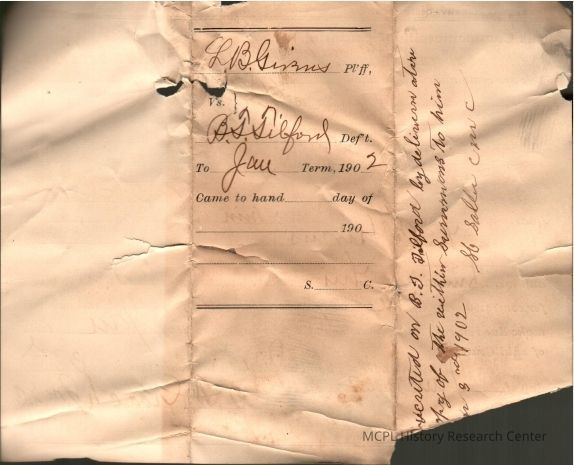 L. B. Givens Pl'ff,
Vs.
B. T. Tilford Def't.
To Jan Term, 1902
Came to hand day of
190
S. C.
on B. T. Tilford by delivern
of the within summons to him
3rd 1902
MCPL History Research Center